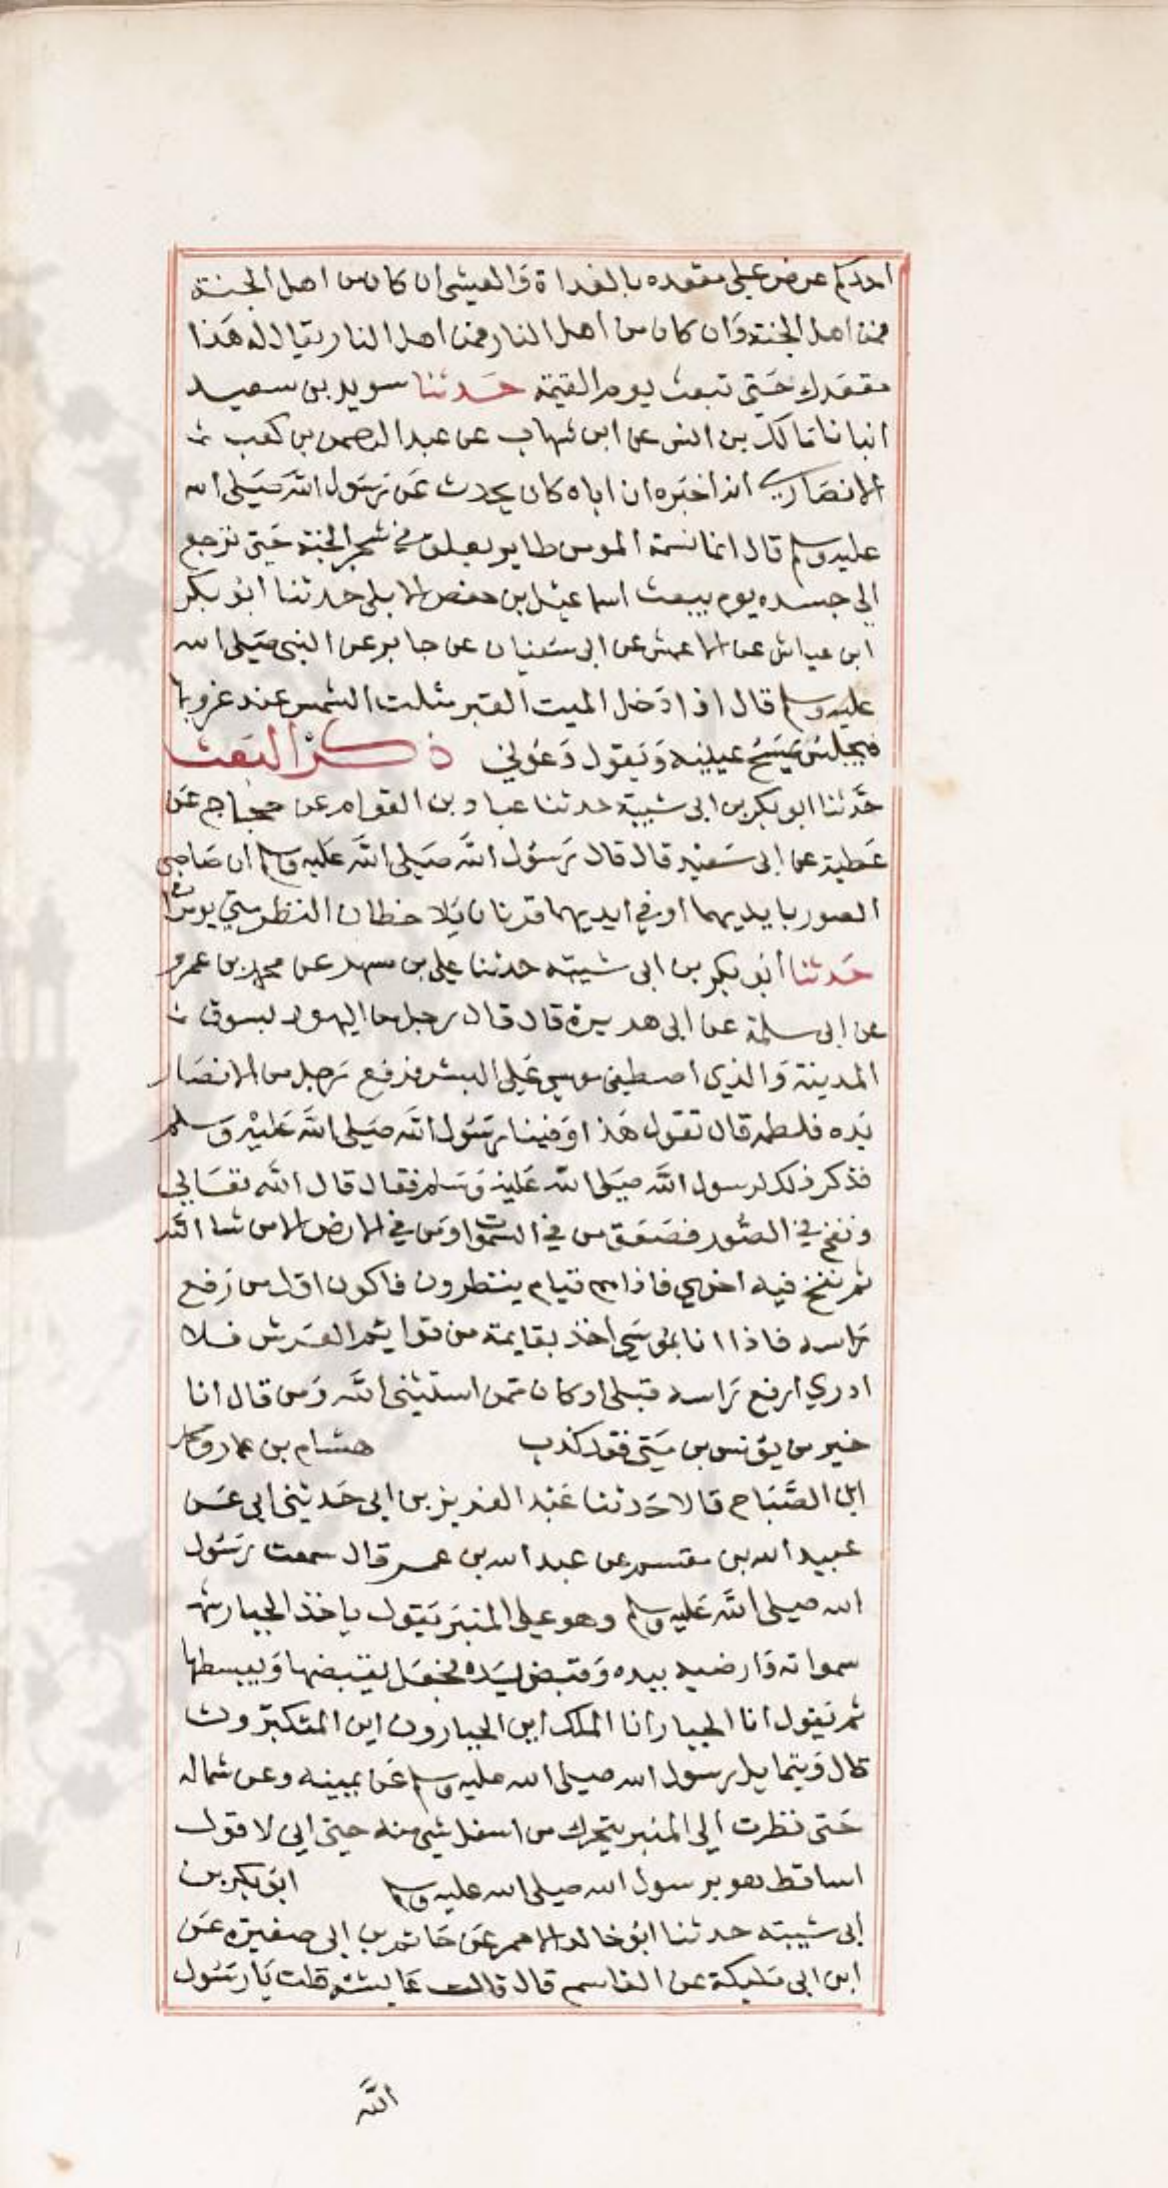 احدكم عرض على مقعده بالغداة والعشي ان كان من اهل الجنة
فمن اهل الجنة وان كان من اهل النار فمن اهل النار يقال له هذا
مقعدك حتى تبعث يوم القيمة حدثنا سويد بن سعيد
انبانا مالك بن انس عن ابن شهاب عن عبد الرحمن بن كعب
الانصاري انه اخبره ان اباه كان يحدث عن رسول الله صلى الله
عليه وسلم قال انما نسمة المومن طاير يعلق في شجر الجنة حتى ترجع
الى جسده يوم يبعث اسماعيل بن حفص الابلي حدثنا ابو بكر
ابن عياش عن الاعمش عن ابى سفيان عن جابر عن النبي صلى الله
عليه وسلم قال اذا دخل الميت القبر مثلت الشمس عند غروبها
فيجلس يمسح عينيه ويقول دعوني ذكر البعث
حدثنا ابو بكر بن ابى شيبة حدثنا عباد بن العوام عن حجاج عن
عطية عن ابى سعيد قال قال رسول الله صلى الله عليه وسلم ان صاحبى
الصور بايديهما او في ايديهما قرنان يلاحظان النظر متي يومران
حدثنا ابو بكر بن ابى شيبة حدثنا علي بن مسهر عن محمد بن عمرو
عن ابى سلمة عن ابى هريرة قال قال رجل من اليهود بسوق
المدينة والذي اصطفى موسي على البشر فرفع رجل من الانصار
يده فلطمه قال تقول هذا وفينا رسول الله صلى الله عليه وسلم
فذكر ذلك لرسول الله صلى الله عليه وسلم فقال قال الله تعالى
ونفخ في الصور فصعق من في السموات ومن في الارض الا من شا الله
ثم نفخ فيه اخرى فاذا هم قيام ينظرون فاكون اول من رفع
راسه فاذا انا بموسى اخذ بقايمة من قوايم العرش فلا
ادري ارفع راسه قبلى او كان ممن استثنى الله ومن قال انا
خير من يونس بن متى فقد كذب هشام بن عمار ومحمد
ابن الصباح قالا حدثنا عبد العزيز بن ابى حدثني ابى عن
عبيد الله بن مقسم عن عبد الله بن عمر قال سمعت رسول
الله صلى الله عليه وسلم وهو على المنبر يقول ياخذ الجبار
سمواته وارضيه بيده وقبض يده فجعل يقبضها ويبسطها
ثم يقول انا الجبار انا الملك اين الجبارون اين المتكبرون
قال ويتمايل رسول الله صلى الله عليه وسلم عن يمينه وعن شماله
حتى نظرت الى المنبر يتحرك من اسفل شي منه حتى اني لاقول
اساقط هو برسول الله صلى الله عليه وسلم ابو بكر بن
ابى شيبة حدثنا ابو خالد الاحمر عن حاتم بن ابى صغيرة عن
ابن ابى مليكة عن القاسم قال قالت عايشة قلت يا رسول
الله